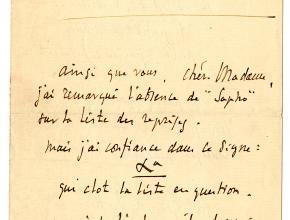 ainsi que vous, chère Madame,
j'ai remarqué l'absence de "Sapho"
sur la liste des reprises.
mais j'ai confiance dans ce signe :
La
qui clot la liste en question.